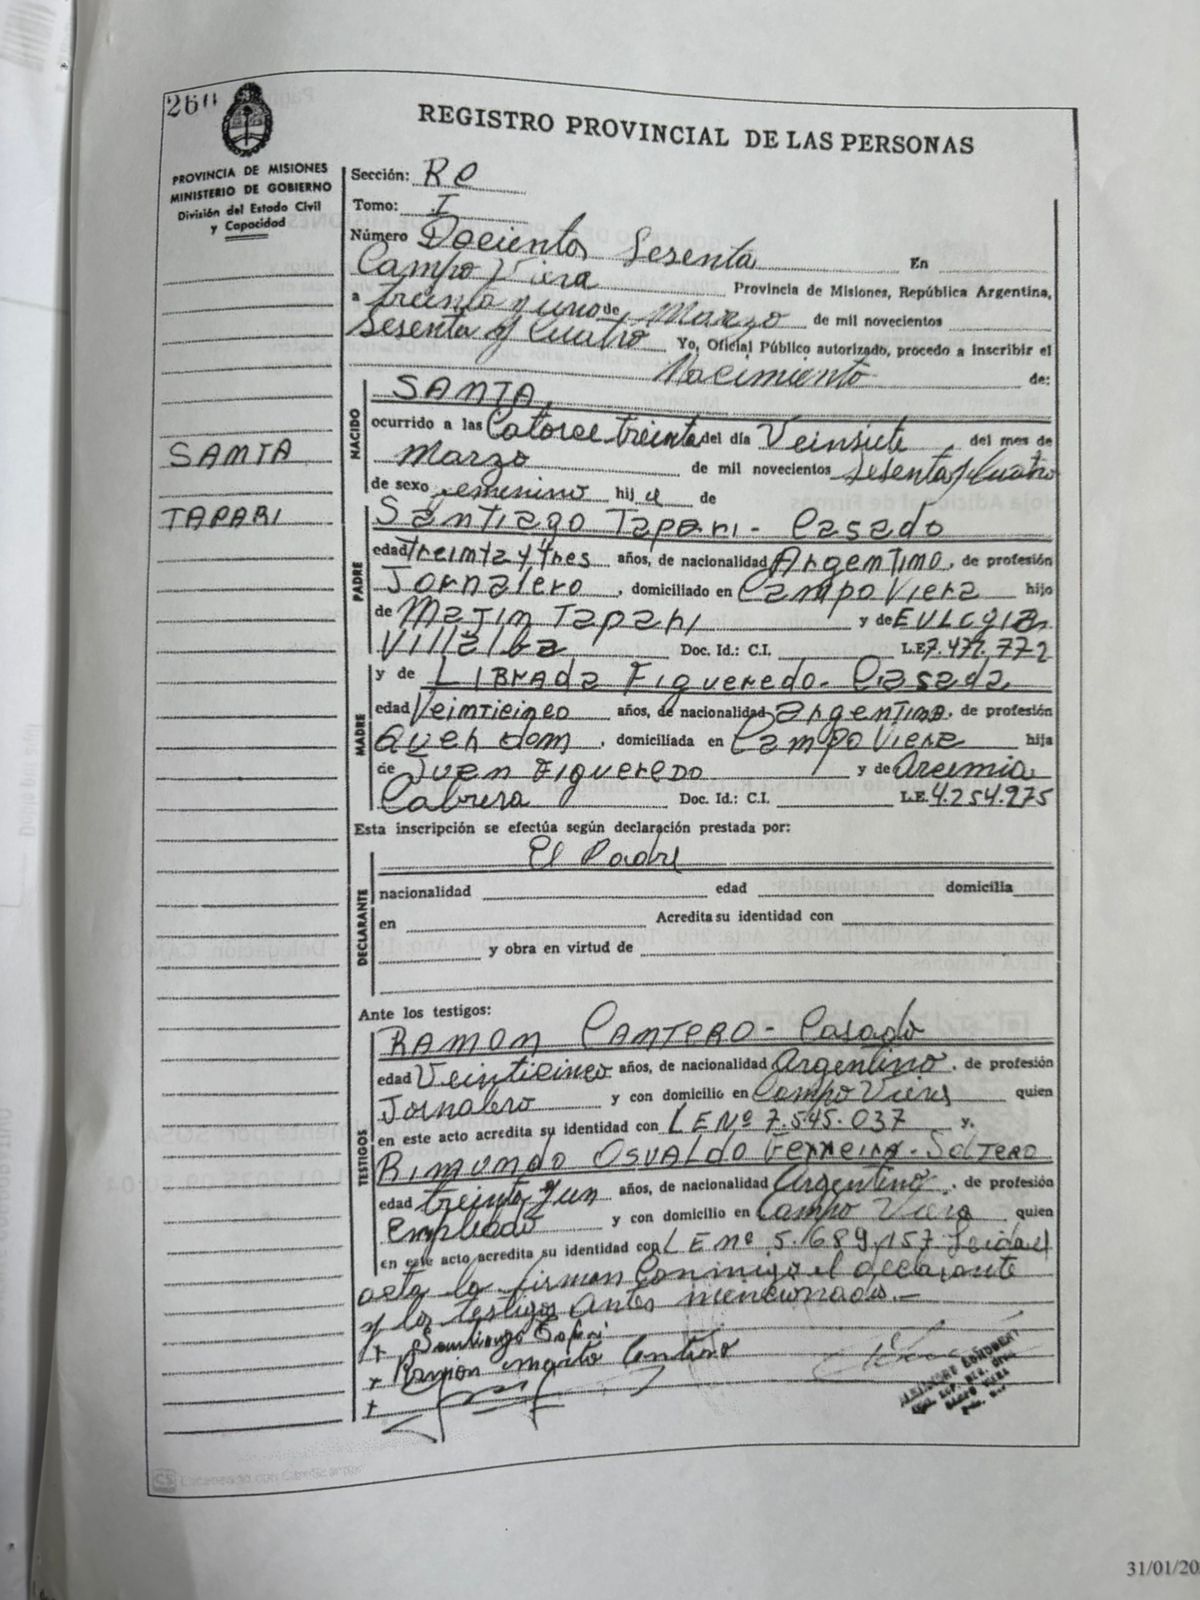 260
REGISTRO PROVINCIAL DE LAS PERSONAS
PROVINCIA DE MISIONES
MINISTERIO DE GOBIERNO
División del Estado Civil
y Capacidad
SANTA
TAPARI
Sección: RC
Tomo: I
Número Docientos Sesenta En
Campo Viera Provincia de Misiones, República Argentina,
a treinta y uno de Marzo de mil novecientos
Sesenta y Cuatro Yo, Oficial Público autorizado, procedo a inscribir el
Nacimiento de:
NACIDO
SANTA,
ocurrido a las Catorce treinta del día Veinsiete, del mes de
Marzo de mil novecientos Sesenta y Cuatro
de sexo femenino hija de
PADRE
Santiago Tapari - Casado
edad treinta y tres años, de nacionalidad Argentino, de profesión
Jornalero, domiciliado en Campo Viera hijo
de Matin Tapari y de Eulogia
Villalba Doc. Id.: C.I. L.E. 7.477.772
MADRE
y de Librada Figueredo - Casada
edad Veinticinco años, de nacionalidad argentina, de profesión
Queh dom, domiciliada en Campo Viera hija
de Juan Figueredo y de
Cabrera Doc. Id.: C.I. L.E. 4.254.975
Esta inscripción se efectúa según declaración prestada por:
DECLARANTE
El Padre
nacionalidad edad domicilia
en Acredita su identidad con
y obra en virtud de
Ante los testigos:
TESTIGOS
RAMON CANTERO - Casado
edad Veinticinco años, de nacionalidad Argentino, de profesión
Jornalero y con domicilio en Campo Viera quien
en este acto acredita su identidad con LE Nº 7.545.037 y.
RIMUNDO OSVALDO Ferreira - SOLTERO
edad treinta y un años, de nacionalidad Argentino, de profesión
Empleado y con domicilio en Campo Viera quien
en este acto acredita su identidad con LE Nº 5.689.157 Leida el
acta la firman Conmigo el declarante
y los testigos Antes mencionados.-
Santiago Tapari
Ramón
CS Escaneado con CamScanner
31/01/20